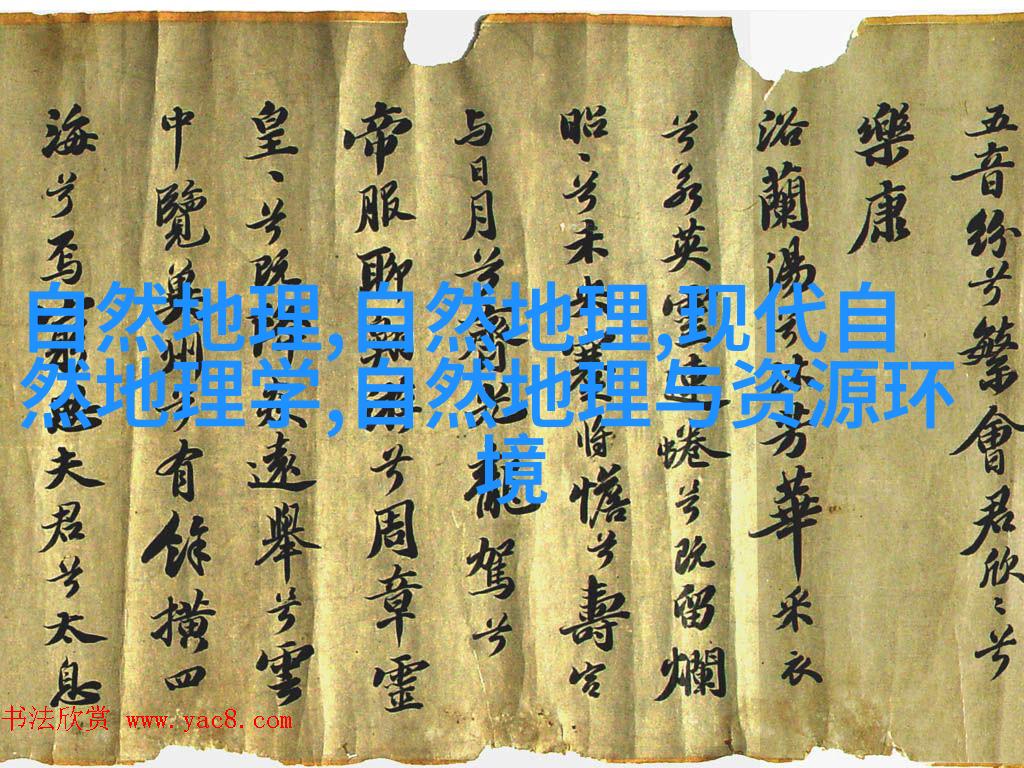 五音紛兮繁會君欣〻兮
樂康
浴蘭湯兮沐芳華采衣
兮若英靈連蜷兮既留爛
昭〻兮未央蹇將憺兮壽宮
与日月兮齊光龍駕兮
帝服聊翱兮周章靈
皇〻兮既降遠舉兮雲
中覽冀州兮有餘橫四
海兮焉思夫君兮太息
自然地理,自然地理,现代自
然地理学,自然地理与资源环
境
书法欣赏 www.yac8.com